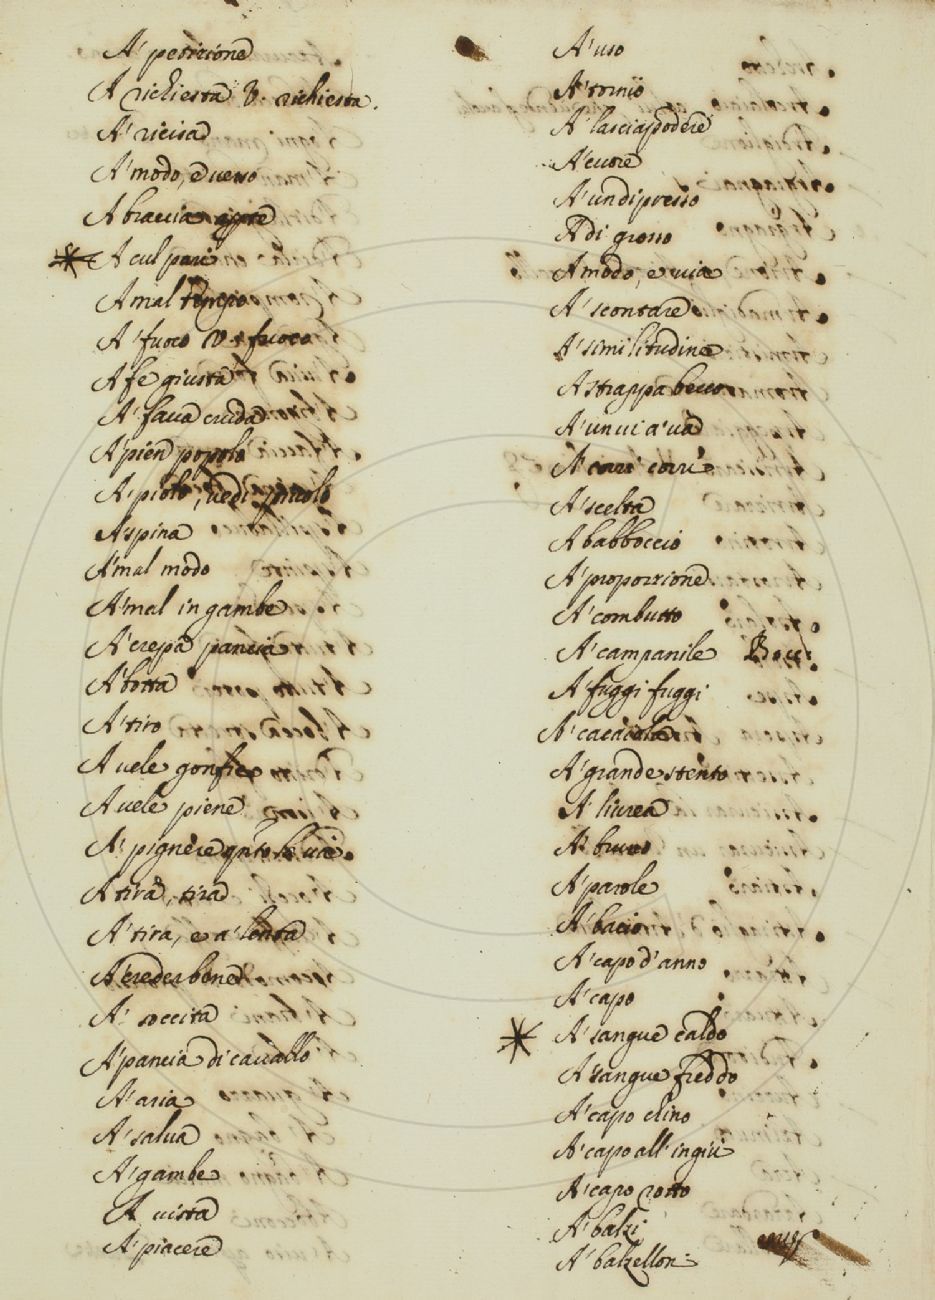 A' petizione
A richiesta V. richiesta.
A' ricisa
A' modo, e verso
A braccia aperte
A cul pari
A mal tempo
A' fuoco V. fuoco
A fe giusta
A' fava cruda
A' pien popolo
A' piolo, vedi piuolo
A spina
A' mal modo
A' mal in gambe
A' crepa pancia
A' botta
A' tiro
A vele gonfie
A vele piene
A' pignere
A tira, tira
A' tira, e a' lenta
A' creder bene
A' soccita
A' pancia di cavallo
A' aria
A' salva
A' gambe
A vista
A' piacere
A' uso
A' tornio
A' lasciapodere
A' cuore
A' undipresso
A di grosso
A modo, e via
A' scontare
A' similitudine
A strappa becco
A' un vi a' va
A' corri corri
A' scelta
A babboccio
A' proporzione
A' combutto
A' campanile Bocc:
A' fuggi fuggi
A' cacaiola
A' grande stento
A' livrea
A' bruno
A' parole
A' bacio
A' capo d'anno
A' capo
A' sangue caldo
A sangue freddo
A' capo chino
A' capo all' ingiù
A' capo rotto
A' balzi
A' balzellon: